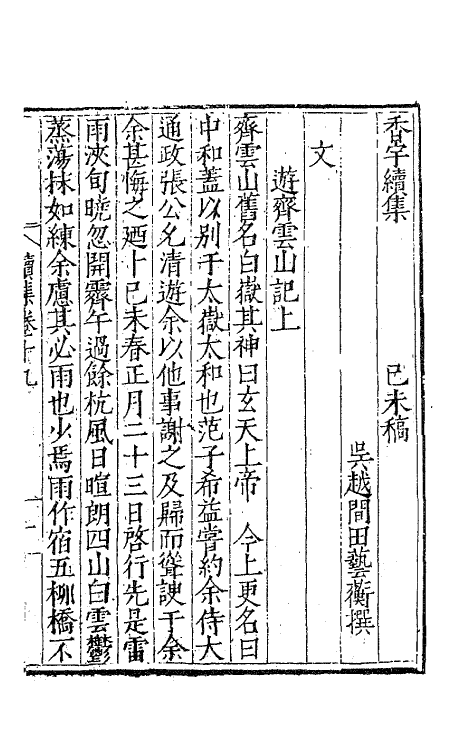 香宇續集 己未稿
吳越間田藝蘅撰
文
遊齊雲山記上
齊雲山舊名白嶽其神曰玄天上帝 今上更名曰
中和蓋以别于太嶽太和也范子希益嘗約余侍大
通政張公允清遊余以他事謝之及歸而聳諛于余
余甚悔之廼卜己未春正月二十三日啓行先是雷
雨浹旬曉忽開霽午過餘杭風日暄朗四山白雲鬱
蒸蕩抹如練余慮其必雨也少焉雨作宿五柳橋不
續集卷十九 一